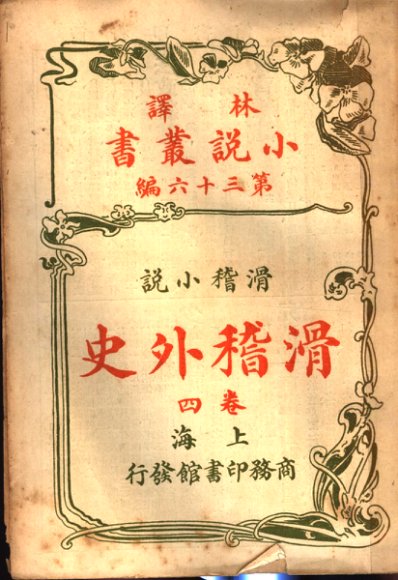 林譯
小說叢書
第三十六編
滑稽小說
滑稽外史
卷四
上海
商務印書館發行